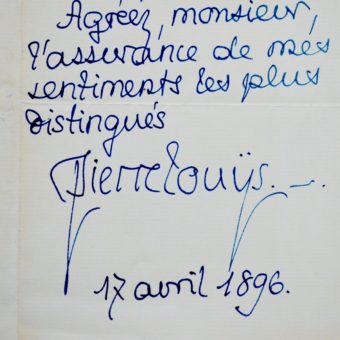 Agréez, monsieur,
l'assurance de mes
sentiments les plus
distingués
Pierre Louÿs. _ .
17 avril 1896.